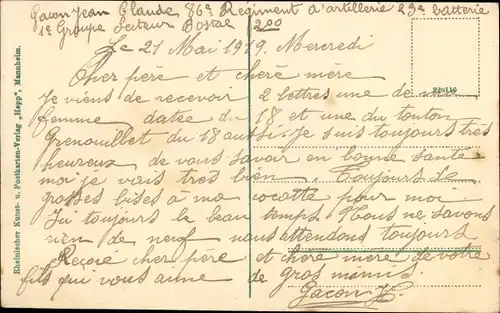 Gacon Jean Claude 86e Regiment d'artillerie 29e batterie
1e Groupe Secteur Postal 200
Le 21 Mai 1919. Mercredi
Cher père et chère mère
Je viens de recevoir 2 lettres une de ma
femme datée du 18 et une du tonton
Grenouillet du 18 aussi. je suis toujours très
heureux de vous savoir en bonne santé
moi je vais très bien. Toujours de
grosses bises a ma cocotte pour moi
J'ai toujours le beau temps Nous ne savons
rien de neuf nous attendons toujours
Reçoie cher père et chere mère de votre
fils qui vous aime de gros mimis
Gacon JC
920110
Rheinischer Kunst- u. Postkarten-Verlag „Hepp", Mannheim.